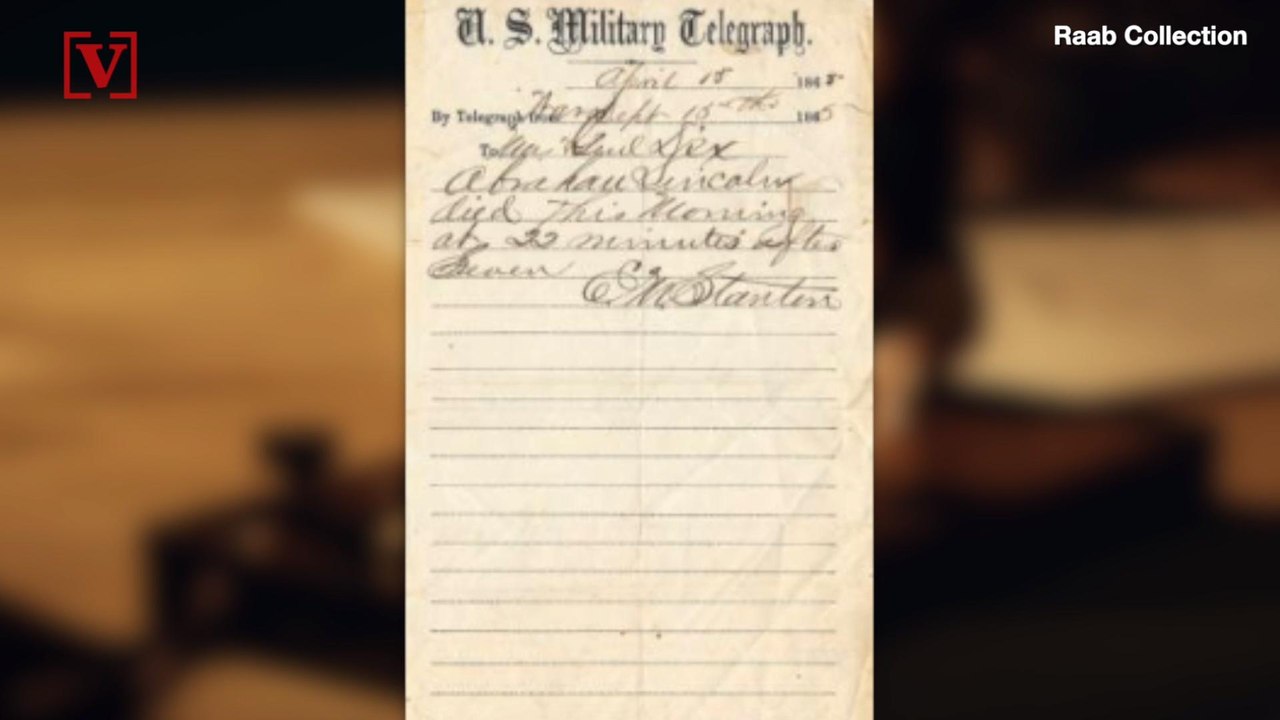 V
Raab Collection
U. S. Military Telegraph.
April 15 1865
By Telegraph from War Dept 15th 1865
To Maj Genl Dix
Abraham Lincoln
died This Morning
at 22 minutes after
Seven
E M Stanton